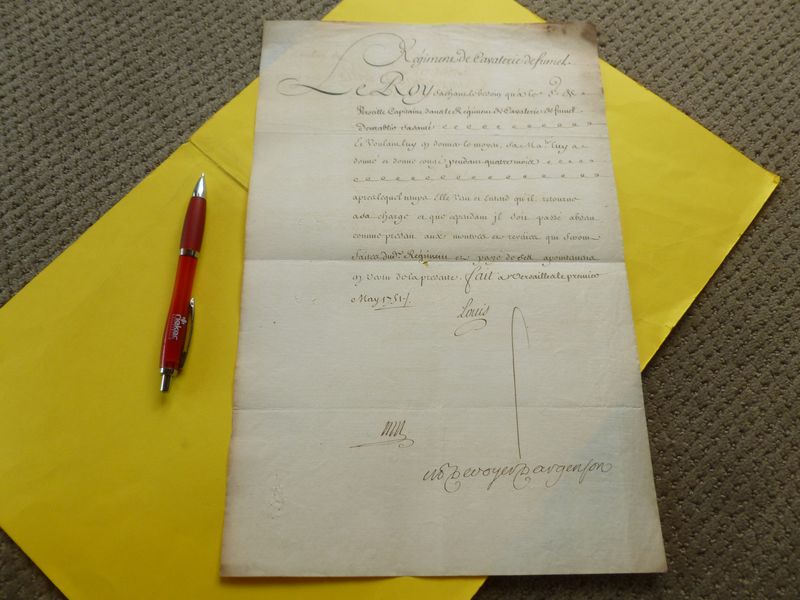 Régiment de Cavalerie de fumel
Le Roy sachant le besoin qu'a le S. de
Capitaine dans le Régiment de Cavalerie de fumel
sa santé
Et Voulant luy en donner le moyen, Sa Ma.té luy a
donné et donne congé pendant quatre mois
apres lequel temps Elle Veut et Entend qu'il retourne
a sa charge et que cependant jl soit passé absent
comme present aux montres et reveües qui seront
faites dud. Régiment et payé de ses apointemens
en Vertu de la presente. fait a Versailles le premier
May 1751
Louis
M De voyer D'argenson
riekar